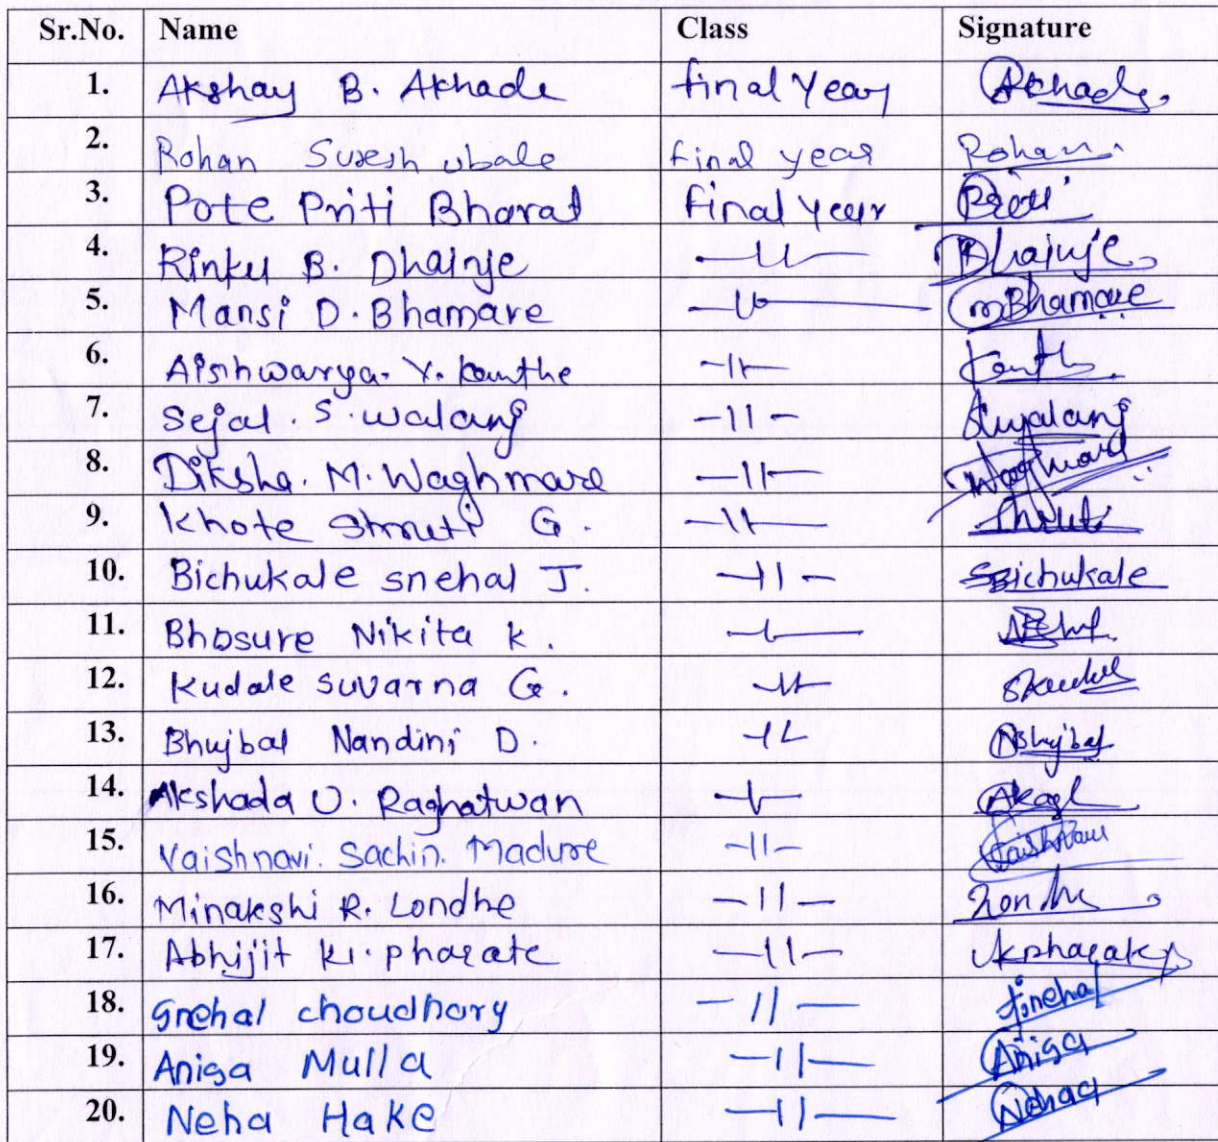 Sr.No. Name Class Signature
1. Akshay B. Akhade final Year Akhade
2. Rohan Suresh ubale final year Rohan
3. Pote Priti Bharat final Year Priti
4. Rinku B. Dhainje —11— Dhainje
5. Mansi D. Bhamare —11— mBhamare
6. Aishwarya. Y. kauthe —11—
7. Sejal. S. walang —11—
8. Diksha. M. Waghmare —11— Waghmare
9. Khote Shruti G. —11— Shruti
10. Bichukale snehal J. —11— SBichukale
11. Bhosure Nikita K. —11—
12. Kudale suvarna G. —11—
13. Bhujbal Nandini D. —11— NBhujbal
14. Akshada U. Raghatwan —11—
15. Vaishnavi. Sachin. Madure —11— Vaishnavi
16. Minakshi R. Londhe —11— Londhe
17. Abhijit K. pharate —11— Akpharate
18. Snehal choudhary —11— Sneha
19. Anisa Mulla —11— Anisa
20. Neha Hake —11—